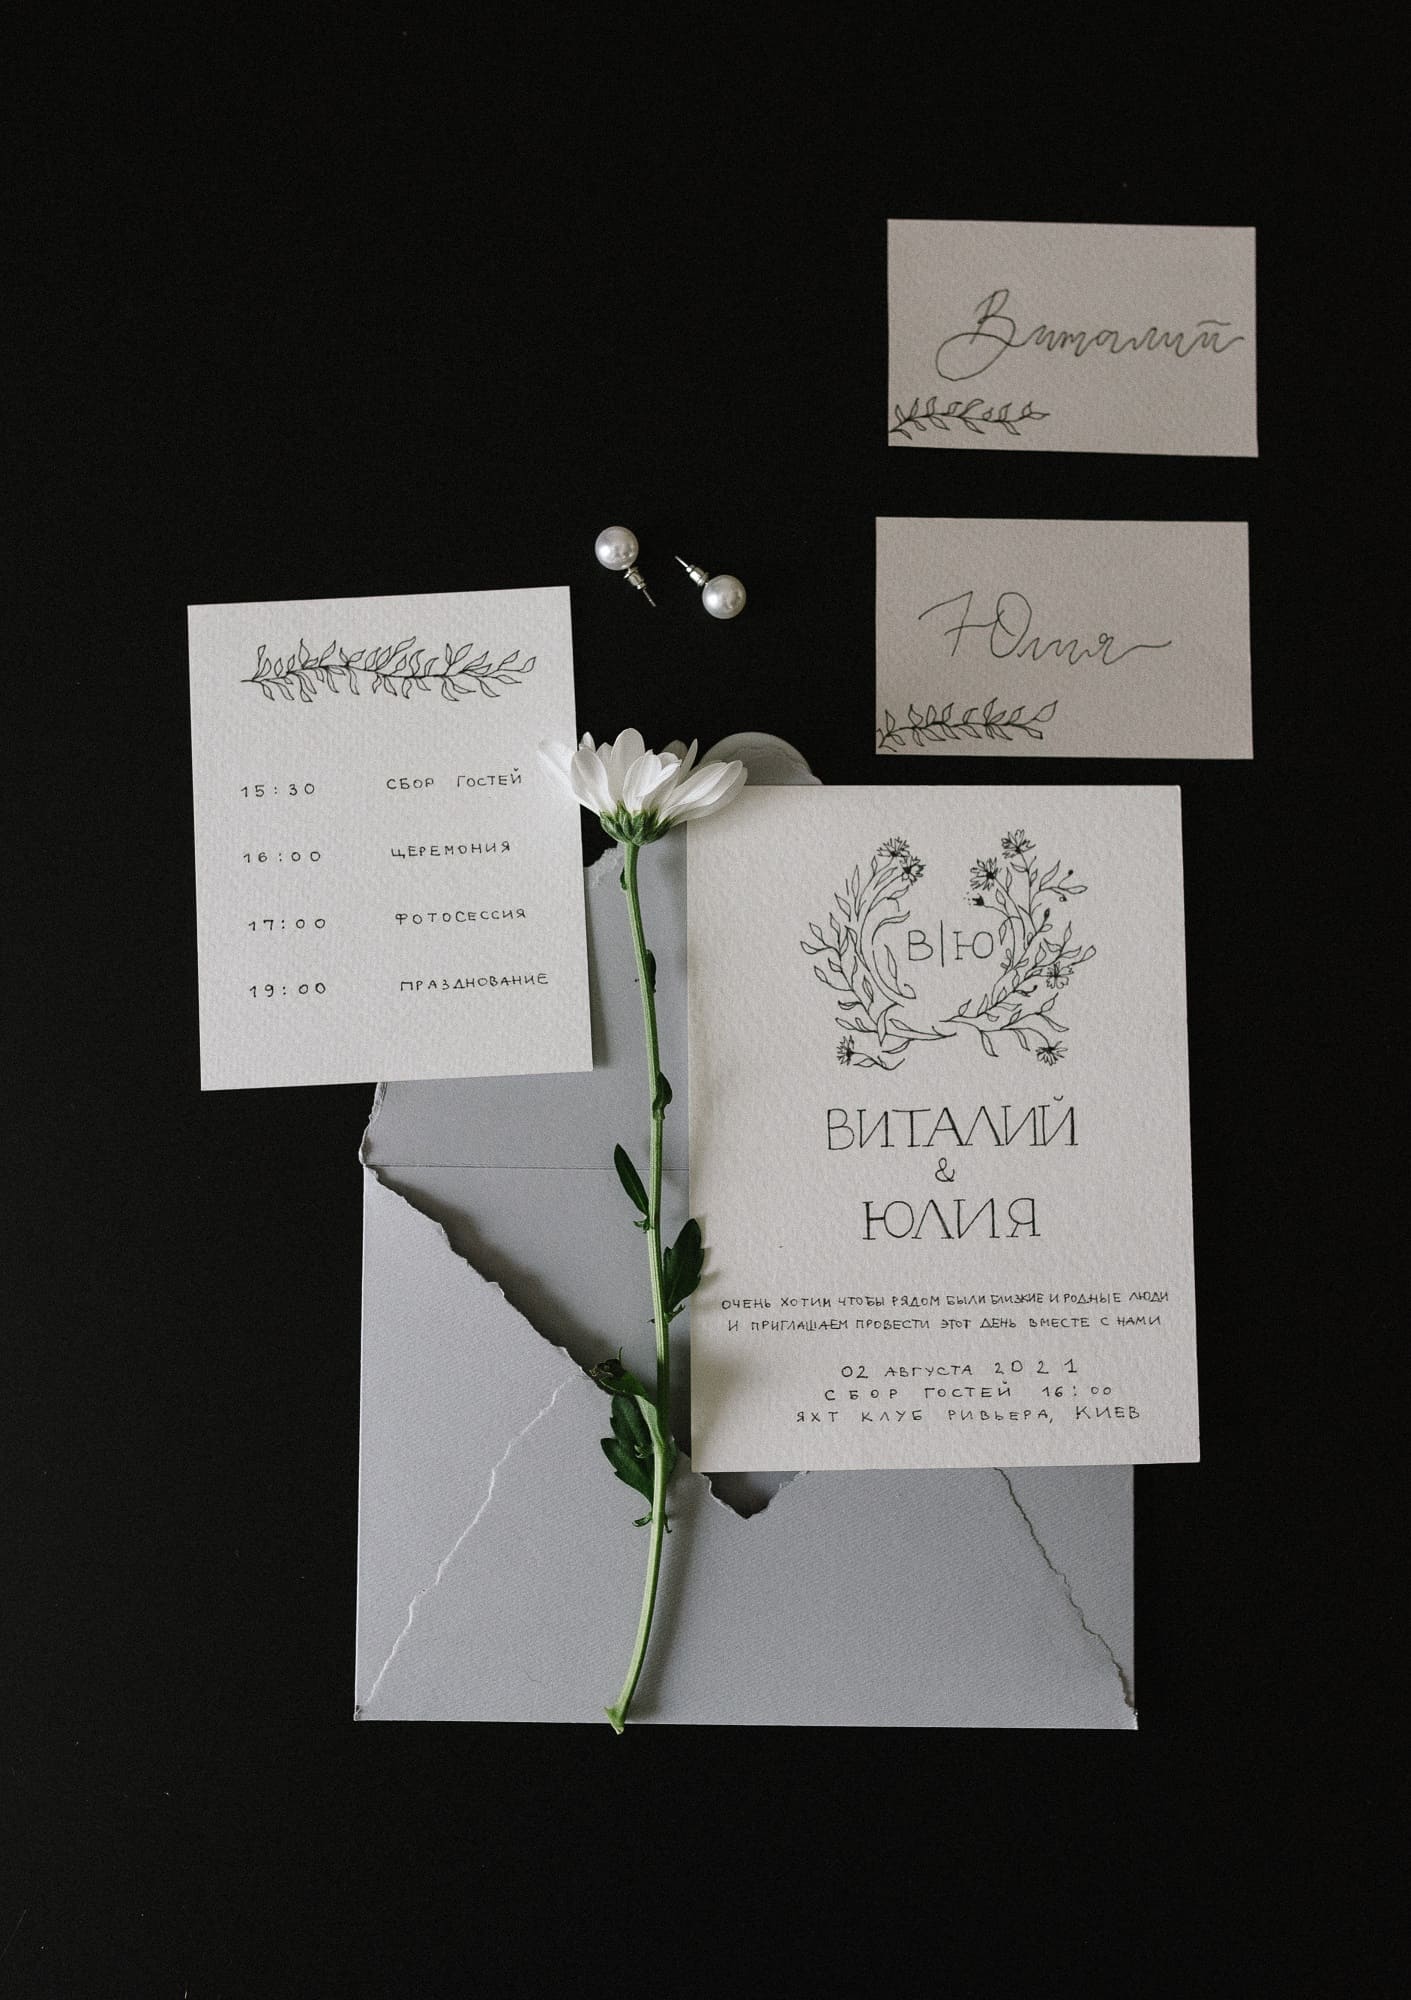 Виталий
Юлия
15:30 СБОР ГОСТЕЙ
16:00 ЦЕРЕМОНИЯ
17:00 ФОТОСЕССИЯ
19:00 ПРАЗДНОВАНИЕ
В|Ю
ВИТАЛИЙ
&
ЮЛИЯ
ОЧЕНЬ ХОТИМ ЧТОБЫ РЯДОМ БЫЛИ БЛИЗКИЕ И РОДНЫЕ ЛЮДИ
И ПРИГЛАШАЕМ ПРОВЕСТИ ЭТОТ ДЕНЬ ВМЕСТЕ С НАМИ
02 АВГУСТА 2021
СБОР ГОСТЕЙ 16:00
ЯХТ КЛУБ РИВЬЕРА, КИЕВ